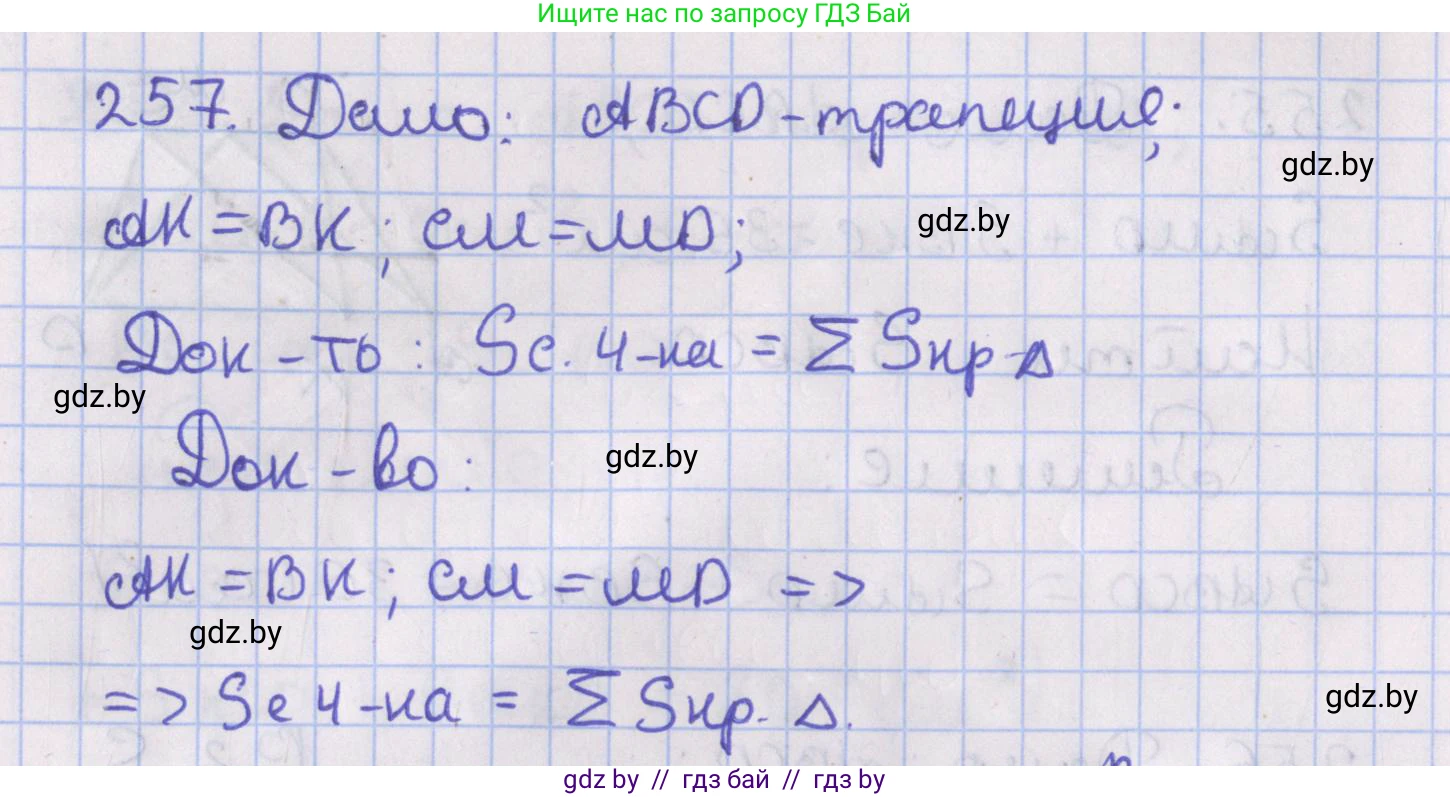 Ищите нас по запросу ГДЗ Бай
257. Дано: ABCD - трапеция;
gdz.by
AK = BK; CM = MD;
gdz.by
Док - ть: Sс. 4-ка = Σ Sкр Δ
gdz.by
Док - во:
gdz.by
AK = BK; CM = MD =>
gdz.by
=> Sс 4-ка = Σ Sкр. Δ.
gdz.by
gdz by // гдз бай // гдз by